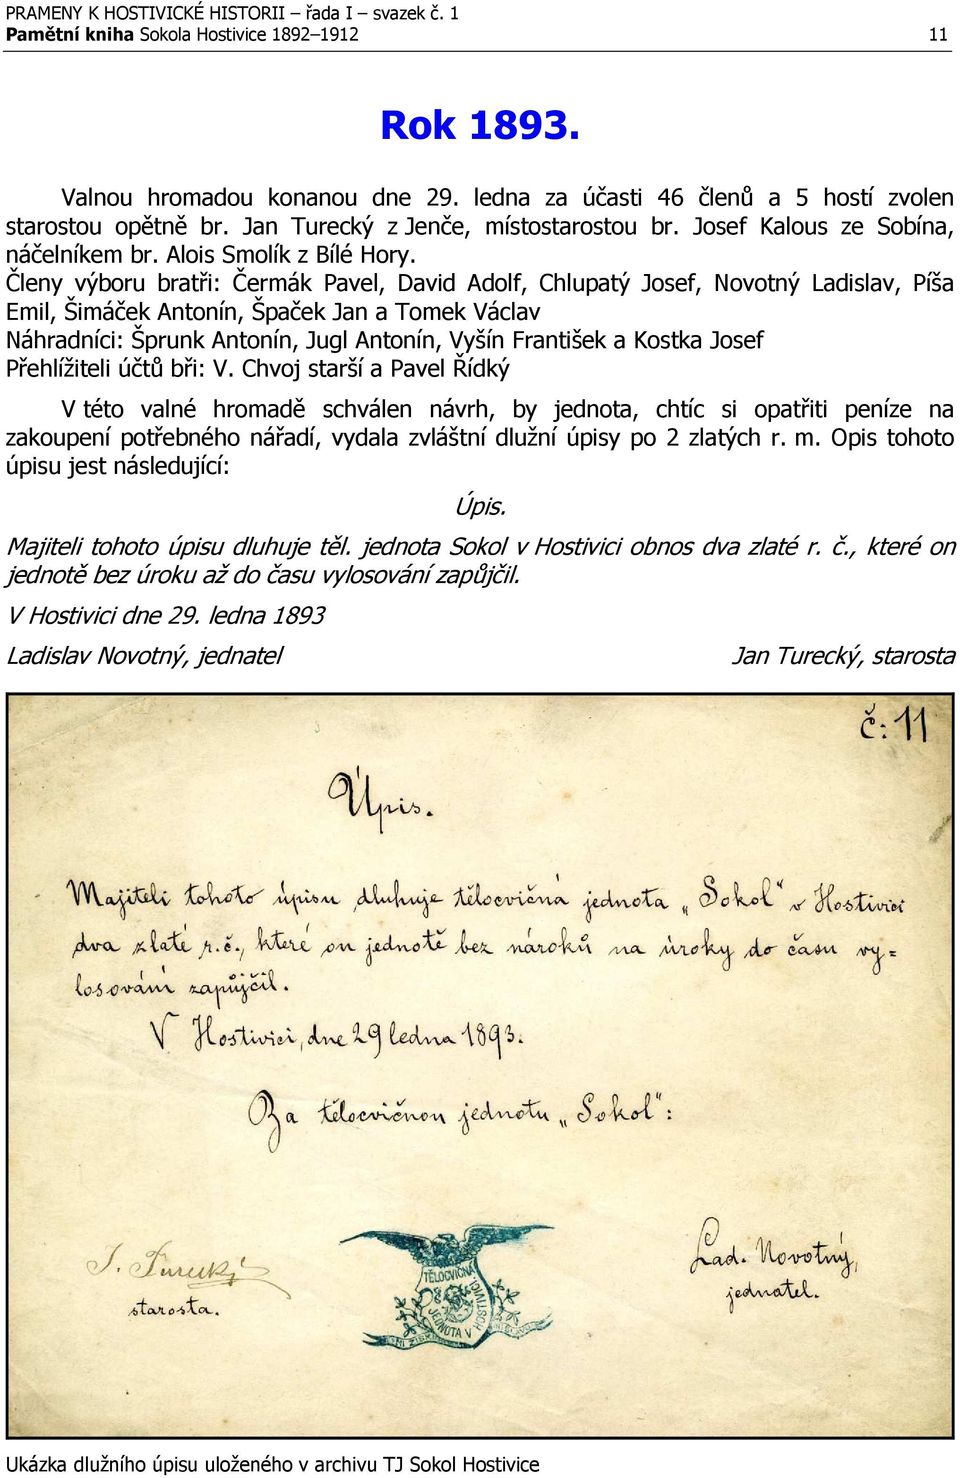 PRAMENY K HOSTIVICKÉ HISTORII – řada I – svazek č. 1
Pamětní kniha Sokola Hostivice 1892–1912 11
Rok 1893.
Valnou hromadou konanou dne 29. ledna za účasti 46 členů a 5 hostí zvolen
starostou opětně br. Jan Turecký z Jenče, místostarostou br. Josef Kalous ze Sobína,
náčelníkem br. Alois Smolík z Bílé Hory.
Členy výboru bratři: Čermák Pavel, David Adolf, Chlupatý Josef, Novotný Ladislav, Píša
Emil, Šimáček Antonín, Špaček Jan a Tomek Václav
Náhradníci: Šprunk Antonín, Jugl Antonín, Vyšín František a Kostka Josef
Přehlížiteli účtů bři: V. Chvoj starší a Pavel Řídký
V této valné hromadě schválen návrh, by jednota, chtíc si opatřiti peníze na
zakoupení potřebného nářadí, vydala zvláštní dlužní úpisy po 2 zlatých r. m. Opis tohoto
úpisu jest následující:
Úpis.
Majiteli tohoto úpisu dluhuje těl. jednota Sokol v Hostivici obnos dva zlaté r. č., které on
jednotě bez úroku až do času vylosování zapůjčil.
V Hostivici dne 29. ledna 1893
Ladislav Novotný, jednatel Jan Turecký, starosta
č: 11
Úpis.
Majiteli tohoto úpisu dluhuje tělocvičná jednota „Sokol“ v Hostivici
dva zlaté r. č., které on jednotě bez nároků na úroky do času vy=
losování zapůjčil.
V Hostivici, dne 29 ledna 1893.
Za tělocvičnou jednotu „Sokol“:
J. Turecký
starosta.
TĚLOCVIČNÁ
JEDNOTA V HOSTIVIC.
Lad. Novotný,
jednatel.
Ukázka dlužního úpisu uloženého v archivu TJ Sokol Hostivice